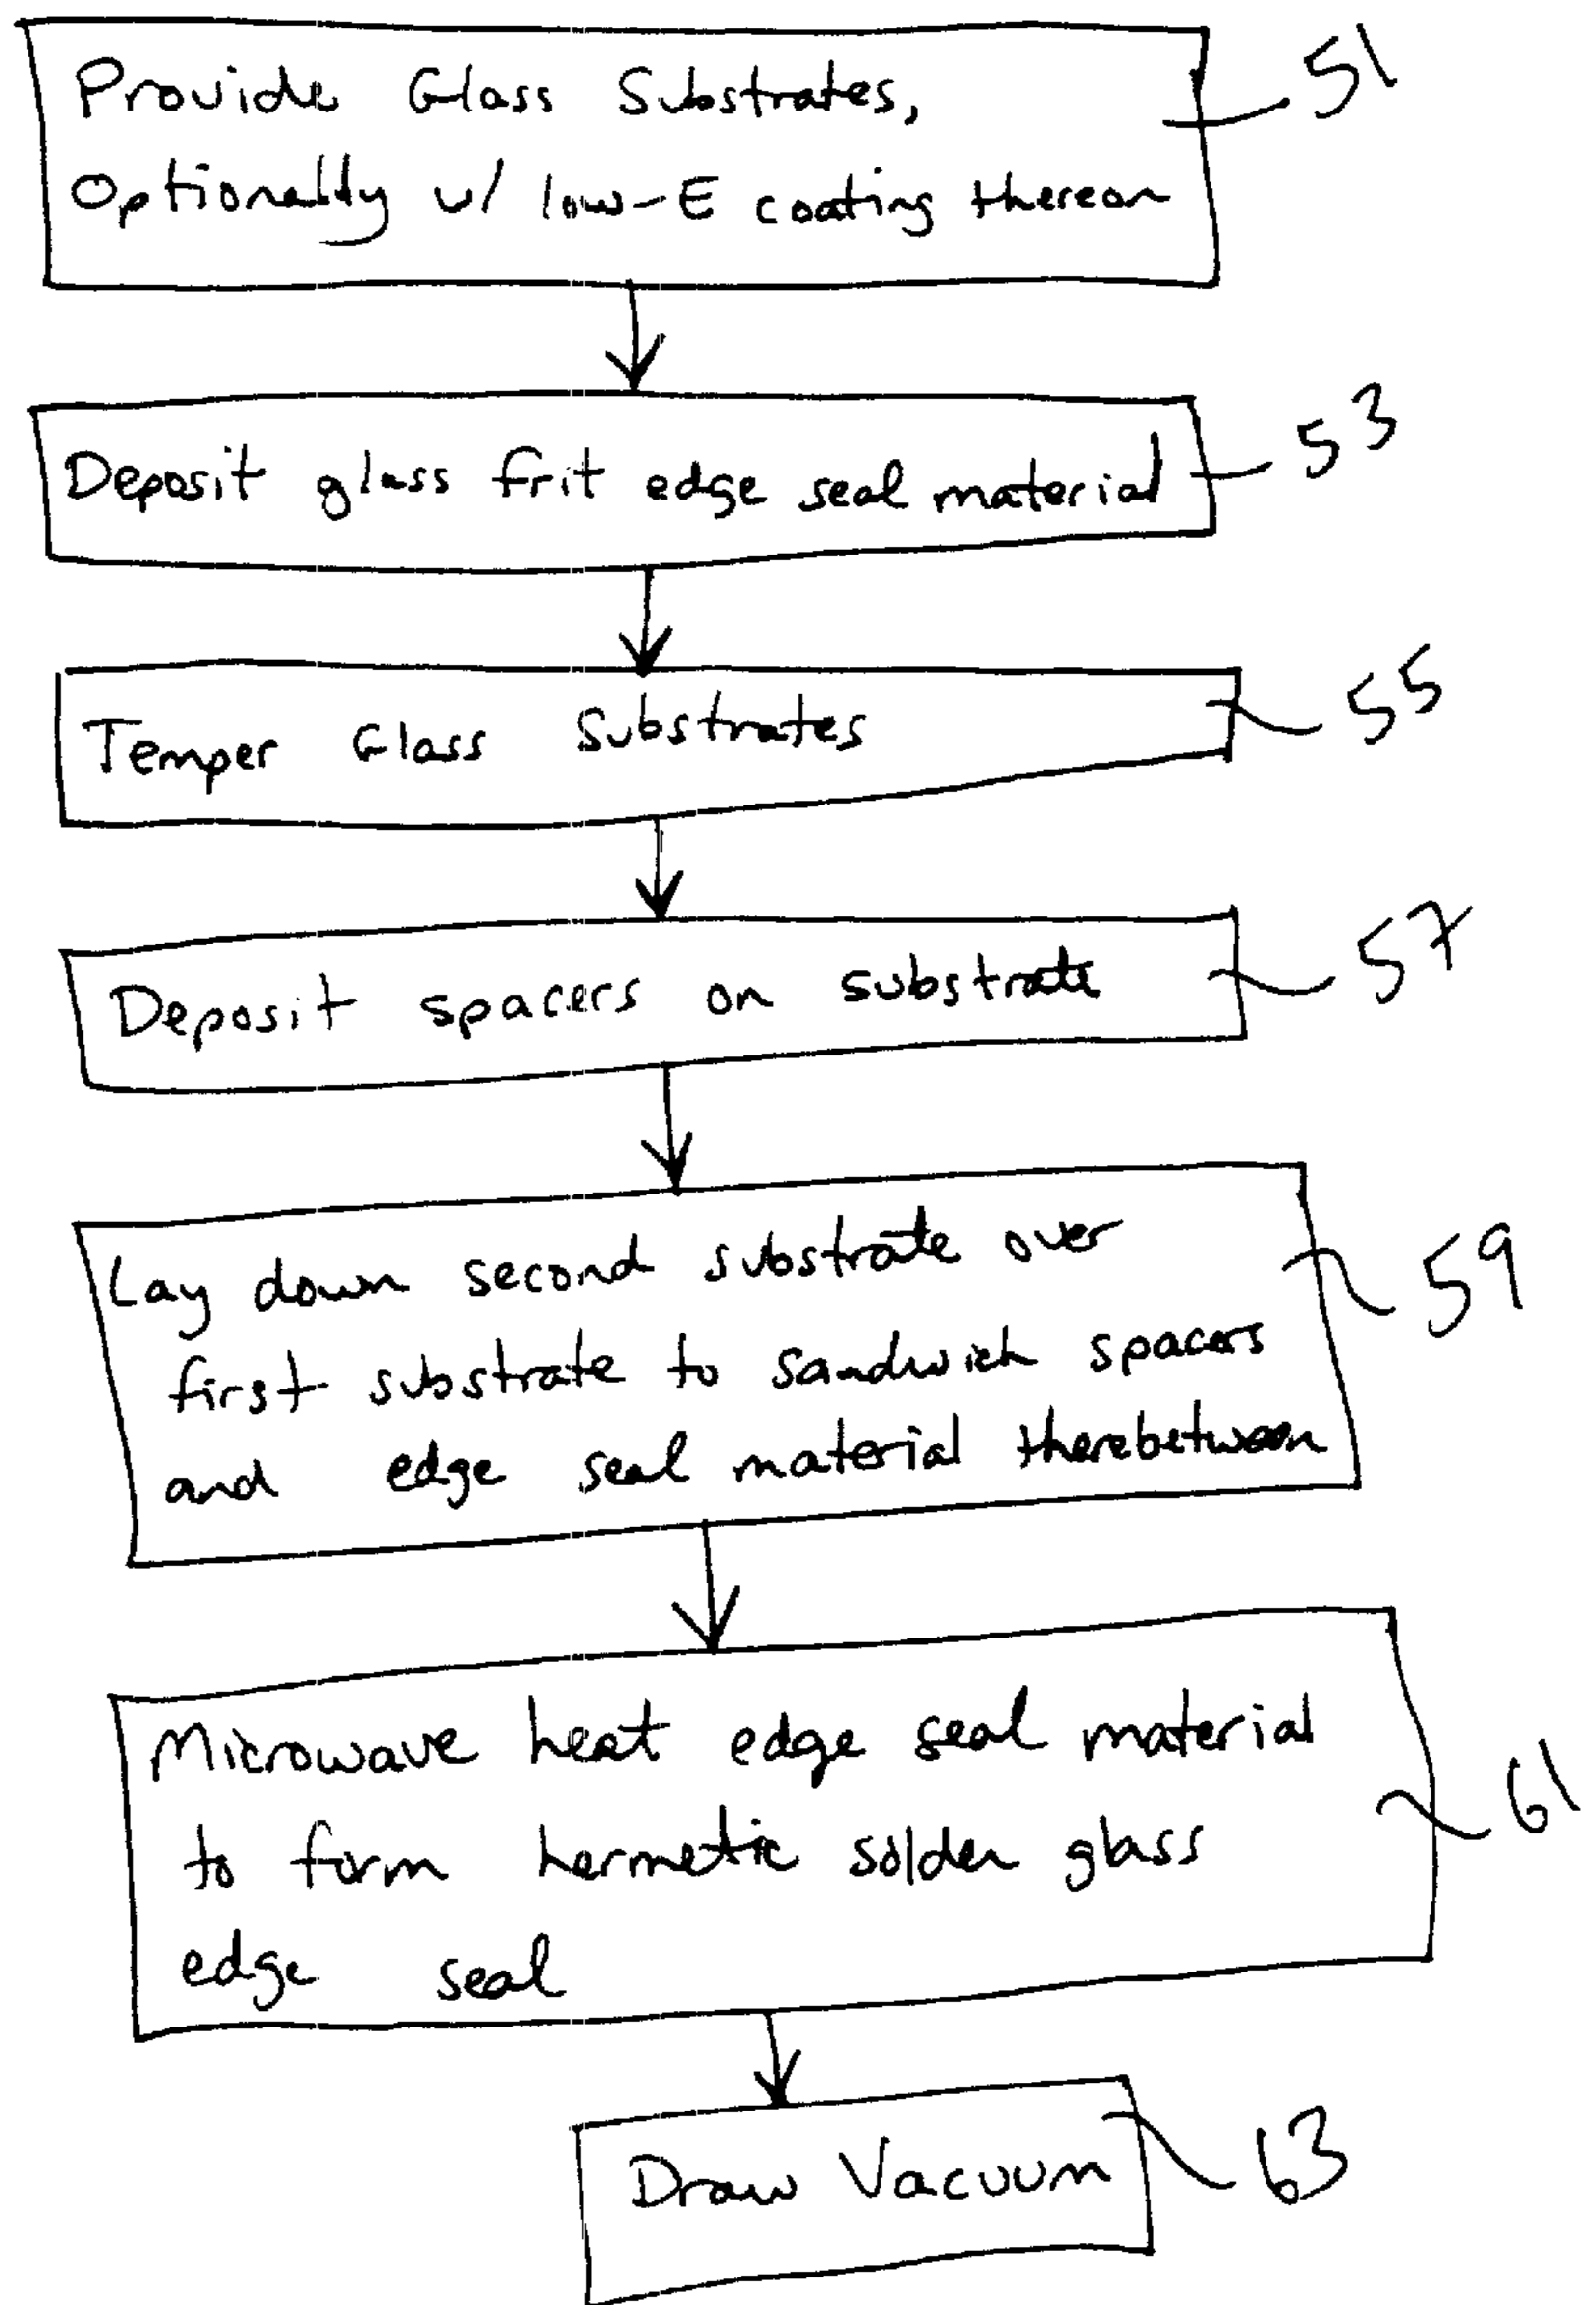 Provide Glass Substrates,
51
Optionally w/ low-E coating thereon
Deposit glass frit edge seal material
53
Temper Glass Substrates
55
Deposit spacers on substrate
57
Lay down second substrate over
first substrate to sandwich spacers
and edge seal material therebetween
59
Microwave heat edge seal material
to form hermetic solder glass
edge seal
61
Draw Vacuum
63